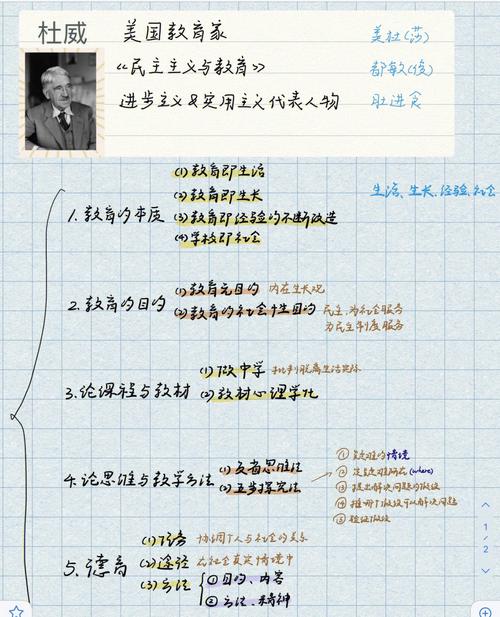 杜威 美国教育家 美杜(莎)
《民主主义与教育》 都敏(俊)
进步主义&实用主义代表人物 肚进食
生活、生长、经验、社会
1. 教育的本质
(1) 教育即生活
(2) 教育即生长
(3) 教育即经验的不断改造
(4) 学校即社会
2. 教育的目的
(1) 教育无目的 内在生长观
(2) 教育的社会性目的 民主,为社会服务
为民主制度服务
3. 论课程与教材
(1) 做中学 批判脱离生活实际
(2) 教材心理学化
4. 论思维与教学方法
(1) 反省思维法
(2) 五步探究法
① 疑难的情境
② 定疑难所在(where)
③ 提出解决问题的假设
④ 推哪个假设可以解决问题
⑤ 验证假设
5. 德育
(1) 任务 协调个人与社会的关系
(2) 途径 在社会真实情境中
(3) 方法
① 目的、内容
② 方法、精神
1/2